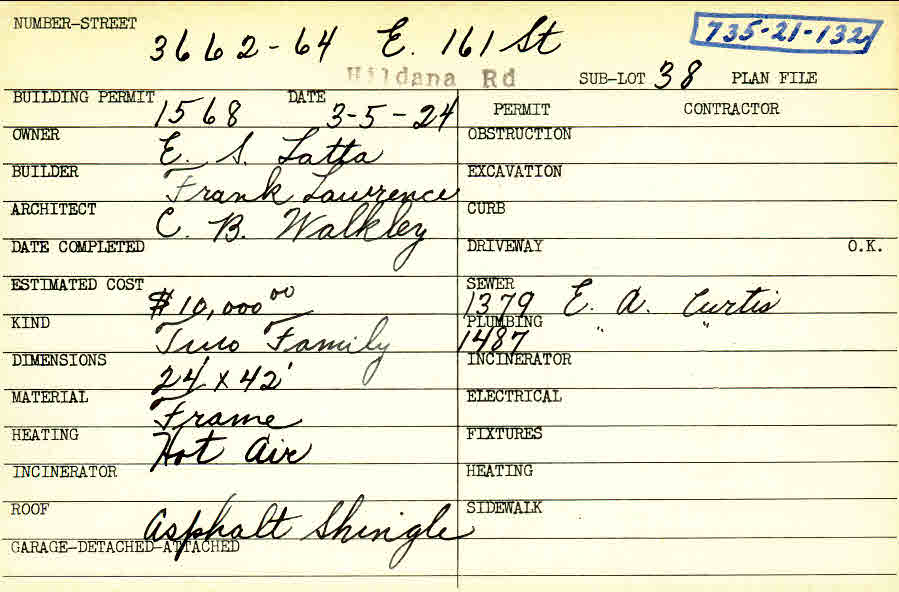 NUMBER-STREET 3662-64 E. 161 St 735-21-132
Hildana Rd SUB-LOT 38 PLAN FILE
BUILDING PERMIT 1568 DATE 3-5-24 PERMIT CONTRACTOR
OWNER E. S. Latta OBSTRUCTION
BUILDER Frank Lawrence EXCAVATION
ARCHITECT C. B. Walkley CURB
DATE COMPLETED DRIVEWAY O.K.
ESTIMATED COST $10,000 00 SEWER 1379 E. A. Curtis
KIND Two Family PLUMBING 1487 " "
DIMENSIONS 24' x 42' INCINERATOR
MATERIAL Frame ELECTRICAL
HEATING Hot Air FIXTURES
INCINERATOR HEATING
ROOF Asphalt Shingle SIDEWALK
GARAGE-DETACHED-ATTACHED